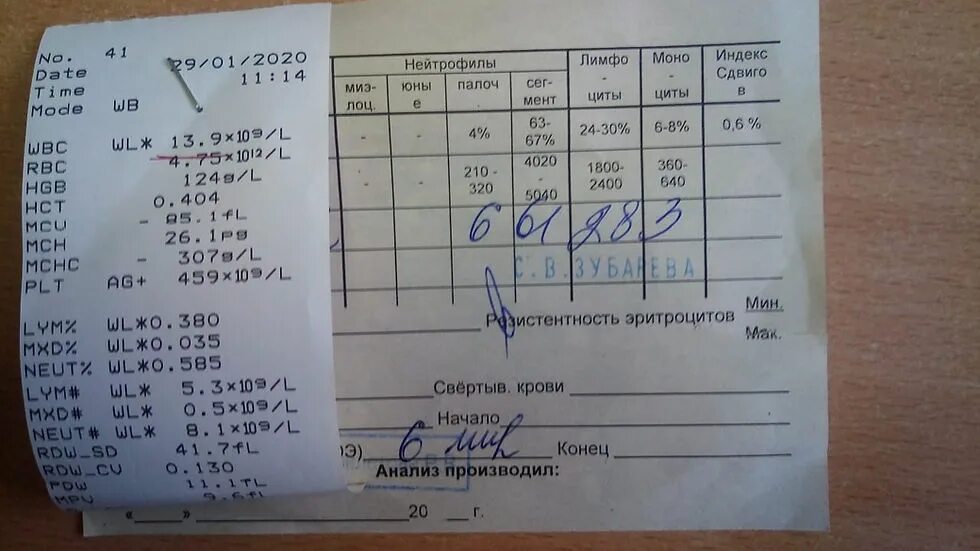 No. 41
Date 29/01/2020
Time 11:14
Mode WB
WBC WL* 13.9×10⁹/L
RBC 4.75×10¹²/L
HGB 124g/L
HCT 0.404
MCV - 85.1fL
MCH 26.1pg
MCHC - 307g/L
PLT AG+ 459×10⁹/L
LYM% WL*0.380
MXD% WL*0.035
NEUT% WL*0.585
LYM# WL* 5.3×10⁹/L
MXD# WL* 0.5×10⁹/L
NEUT# WL* 8.1×10⁹/L
RDW_SD 41.7fL
RDW_CV 0.130
PDW 11.1fL
MPV 9.6fL
Нейтрофилы
Лимфо - циты
Моно - циты
Индекс Сдвигов
миэлоц.
юные
палоч.
сегмент
- - 4% 63-67% 24-30% 6-8% 0,6 %
- - 210 - 320 4020 - 5040 1800-2400 360-640
6 61 28 3
С. В. ЗУБАРЕВА
Резистентность эритроцитов Мин.
Мак.
Свёртыв. крови
Начало
ОЭ) 6 мм Конец
Анализ производил:
« » 20 г.